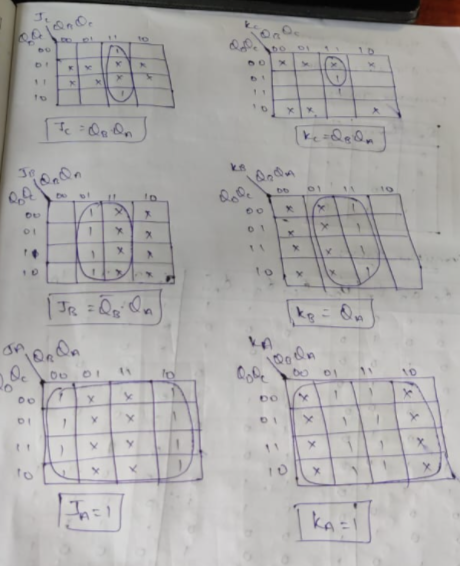 J_C Q_B Q_A
Q_D Q_C 00 01 11 10
00 1
01 x x x x
11 x x x x
10 1
J_C = Q_B · Q_A
K_C Q_B Q_A
Q_D Q_C 00 01 11 10
00 x x x x
01 1
11 1
10 x x x
K_C = Q_B Q_A
J_B Q_B Q_A
Q_D Q_C 00 01 11 10
00 1 x x
01 1 x x
1 1 x x
10 1 x x
J_B = Q_B · Q_A
K_B Q_B Q_A
Q_D Q_C 00 01 11 10
00 x x 1
01 x x 1
11 x x 1
10 x x 1
K_B = Q_A
J_A Q_B Q_A
Q_D Q_C 00 01 11 10
00 1 x x 1
01 1 x x 1
11 1 x x 1
10 1 x x 1
J_A = 1
K_A Q_B Q_A
Q_D Q_C 00 01 11 10
00 x 1 1 x
01 x 1 1 x
11 x 1 1 x
10 x 1 1 x
K_A = 1